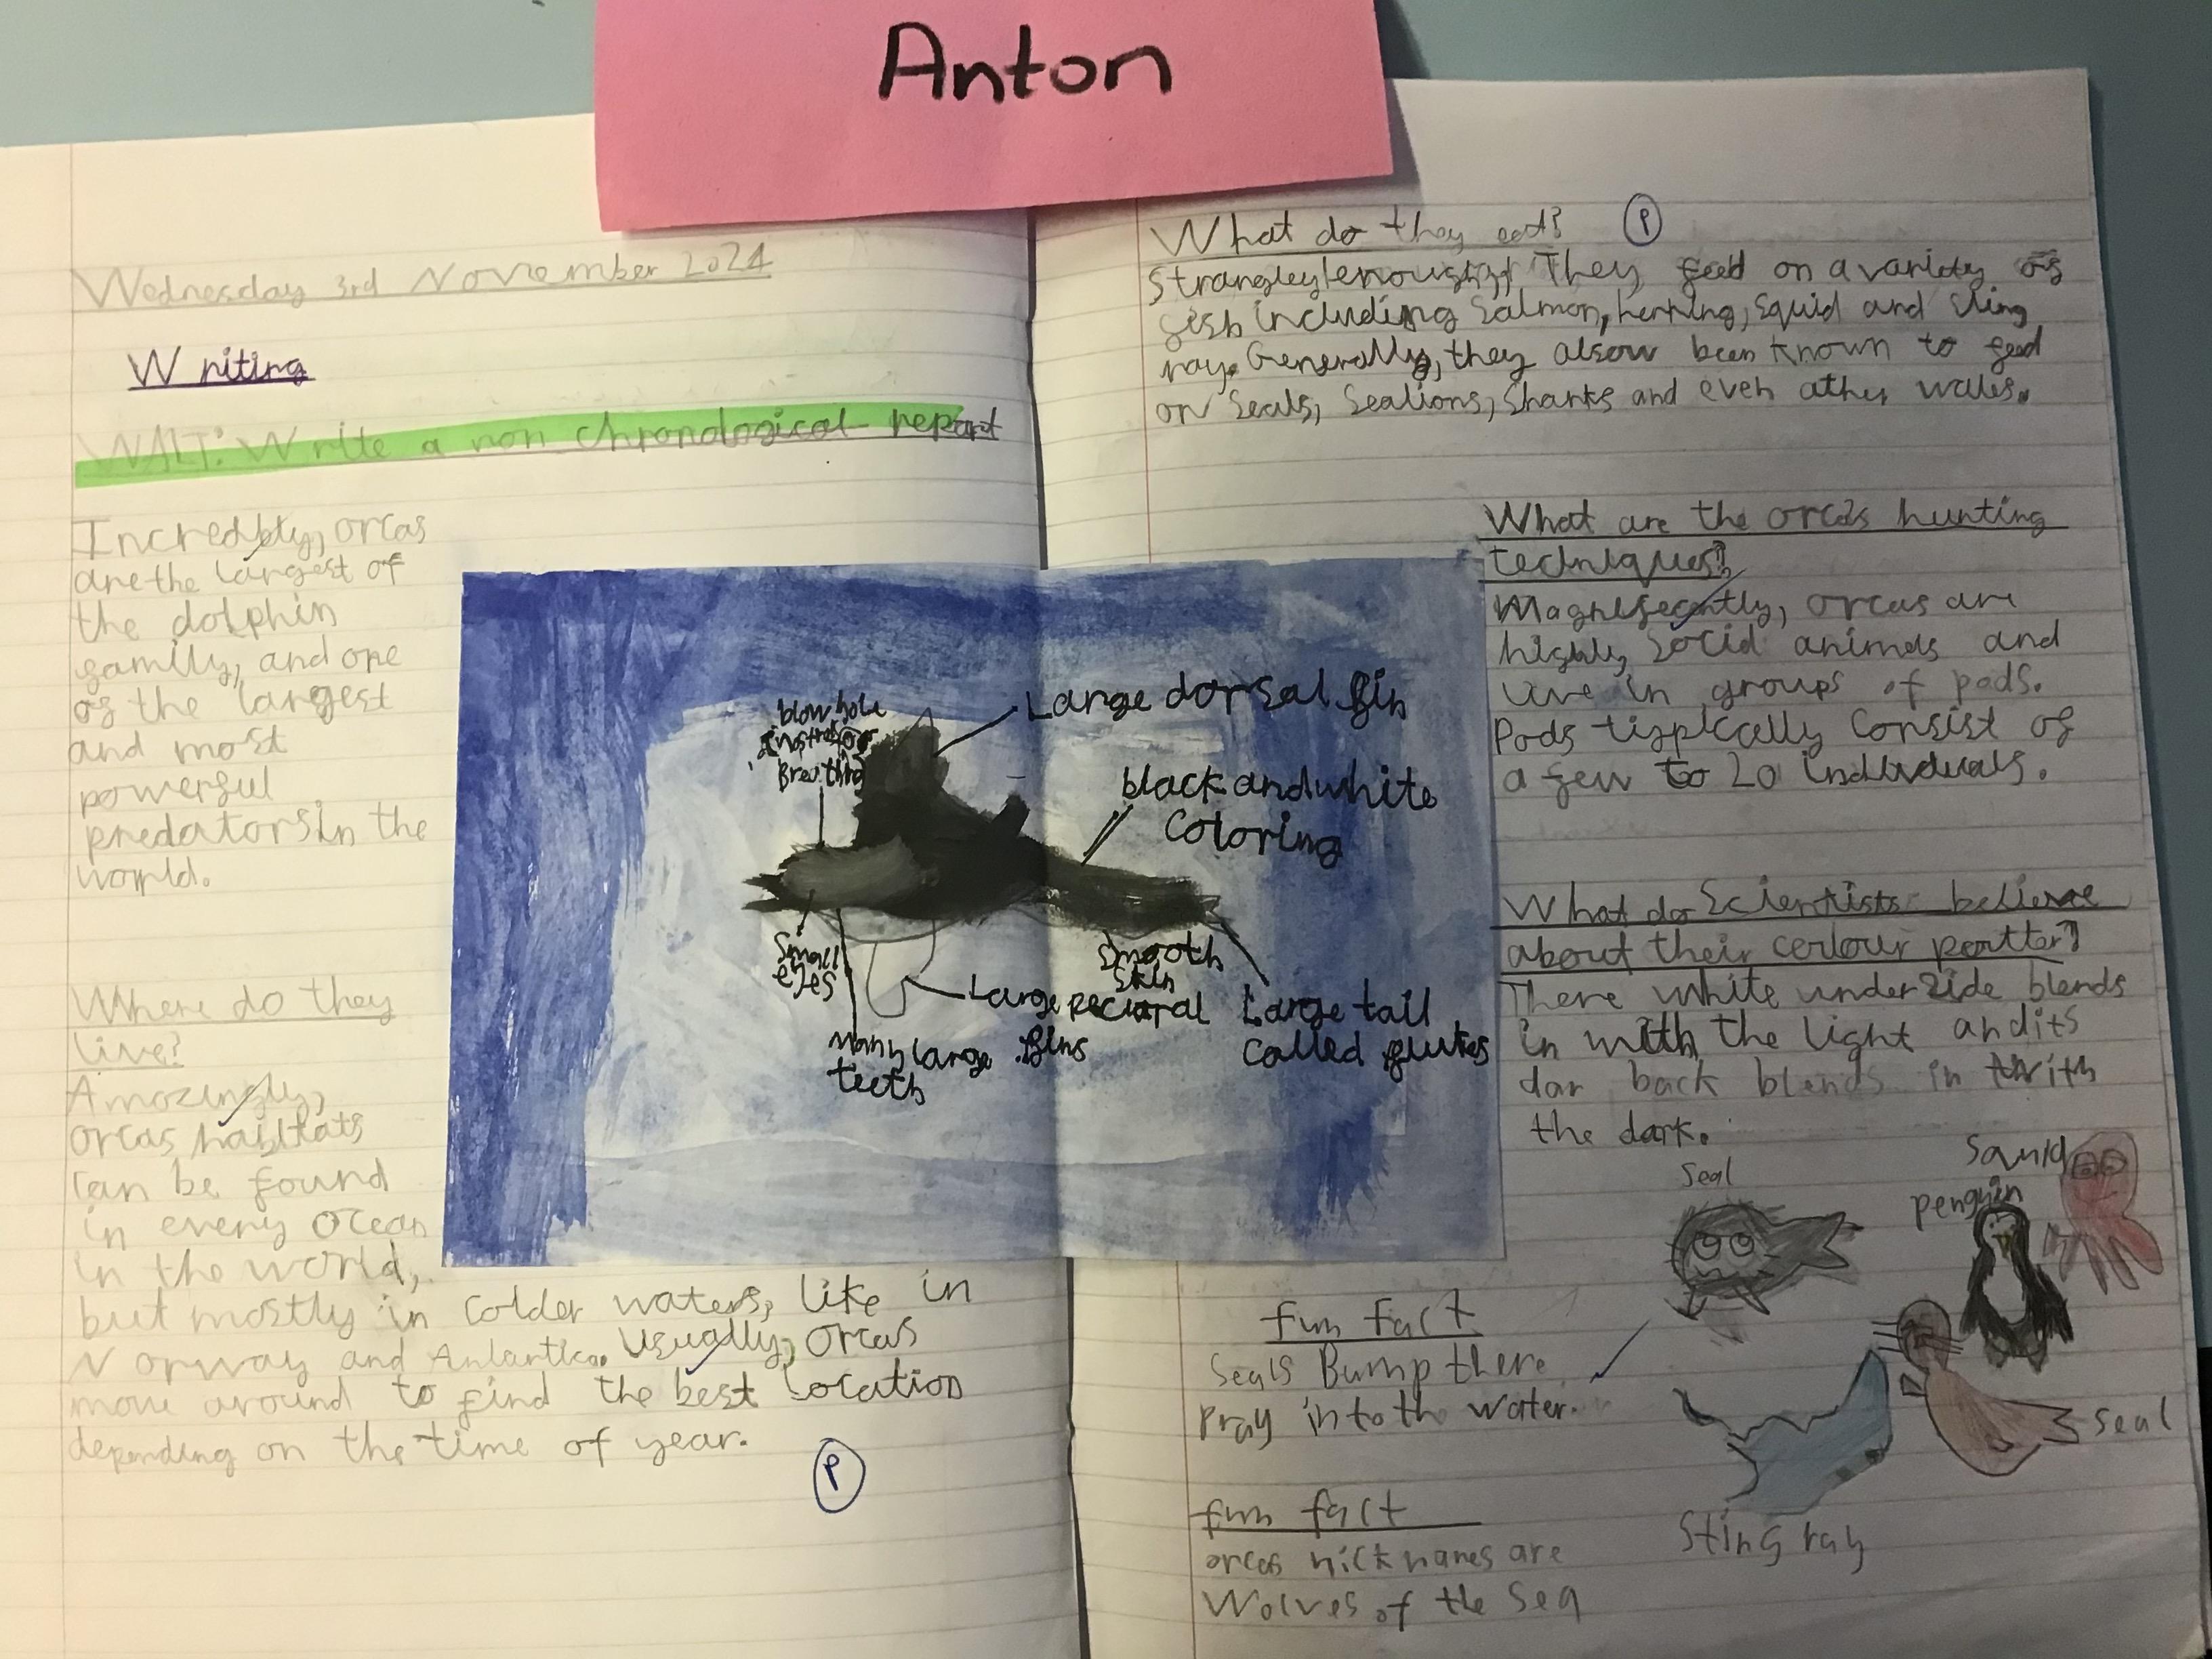 Anton
Wednesday 3rd November 2024
Writing
WALT: Write a non chronological report
Incredbly, orcas
are the largest of
the dolphin
family, and one
of the largest
and most
powerful
predators in the
world.
Where do they
live?
Amozingly,
orcas habitats
can be found
in every ocean
in the world,
but mostly in colder waters, like in
Norway and Antartica. Usually, orcas
move around to find the best location
depending on the time of year.
P
blowhole
for
Breathing
Large dorsal fin
black and white
coloring
Small
eyes
Many large
teeth
Large pectoral
fins
smooth
skin
Large tail
called flukes
What do they eat?
P
Strangley enough, They feed on a variety of
fish including Salmon, herring, squid and sting
ray. Generally, they alsow been known to feed
on Seals, Sealions, Sharks and even other wales.
What are the orcas hunting
techniques?
Magnifecently, orcas are
highly socid animals and
live in groups of pods.
Pods tippically consist of
a few to 20 individuals.
What do Scientists believe
about their colour patter?
There white underside blends
in with the light and its
dar back blends in with
the dark.
Seal
Squid
penguin
Seal
Sting ray
fun fact
Seals Bump there
pray into the water.
fun fact
orcas nick names are
Wolves of the Sea